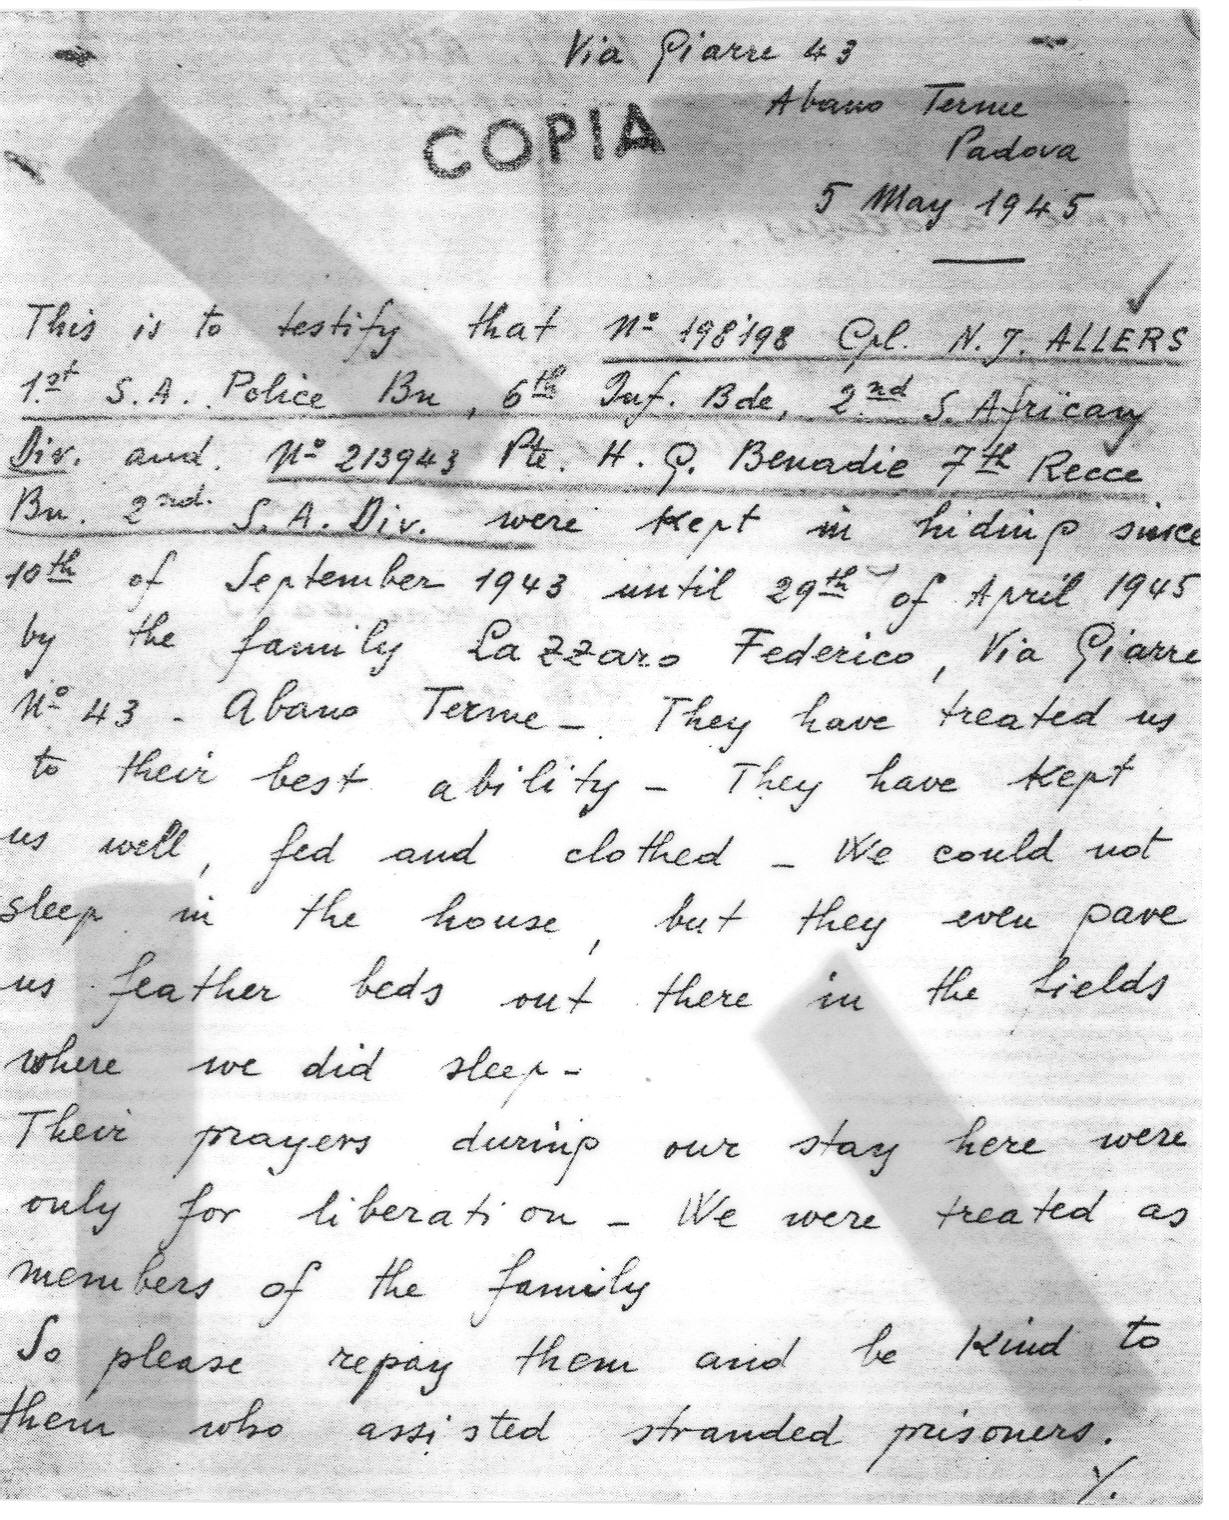 Via Giarre 43
COPIA
Abano Terme
Padova
5 May 1945
This is to testify that Nº 198198 Cpl. N. J. ALLERS
1.st S.A. Police Bn, 6th Inf. Bde, 2nd S. African
Div. and. Nº 213943 Pte. H. G. Benadie 7th Recce
Bn. 2nd. S.A. Div. were kept in hiding since
10th of September 1943 until 29th of April 1945
by the family Lazzaro Federico, Via Giarre
Nº 43 - Abano Terme -. They have treated us
to their best ability - They have kept
us well, fed and clothed - We could not
sleep in the house, but they even gave
us feather beds out there in the fields
where we did sleep -
Their prayers during our stay here were
only for liberation - We were treated as
members of the family
So please repay them and be kind to
them who assisted stranded prisoners.